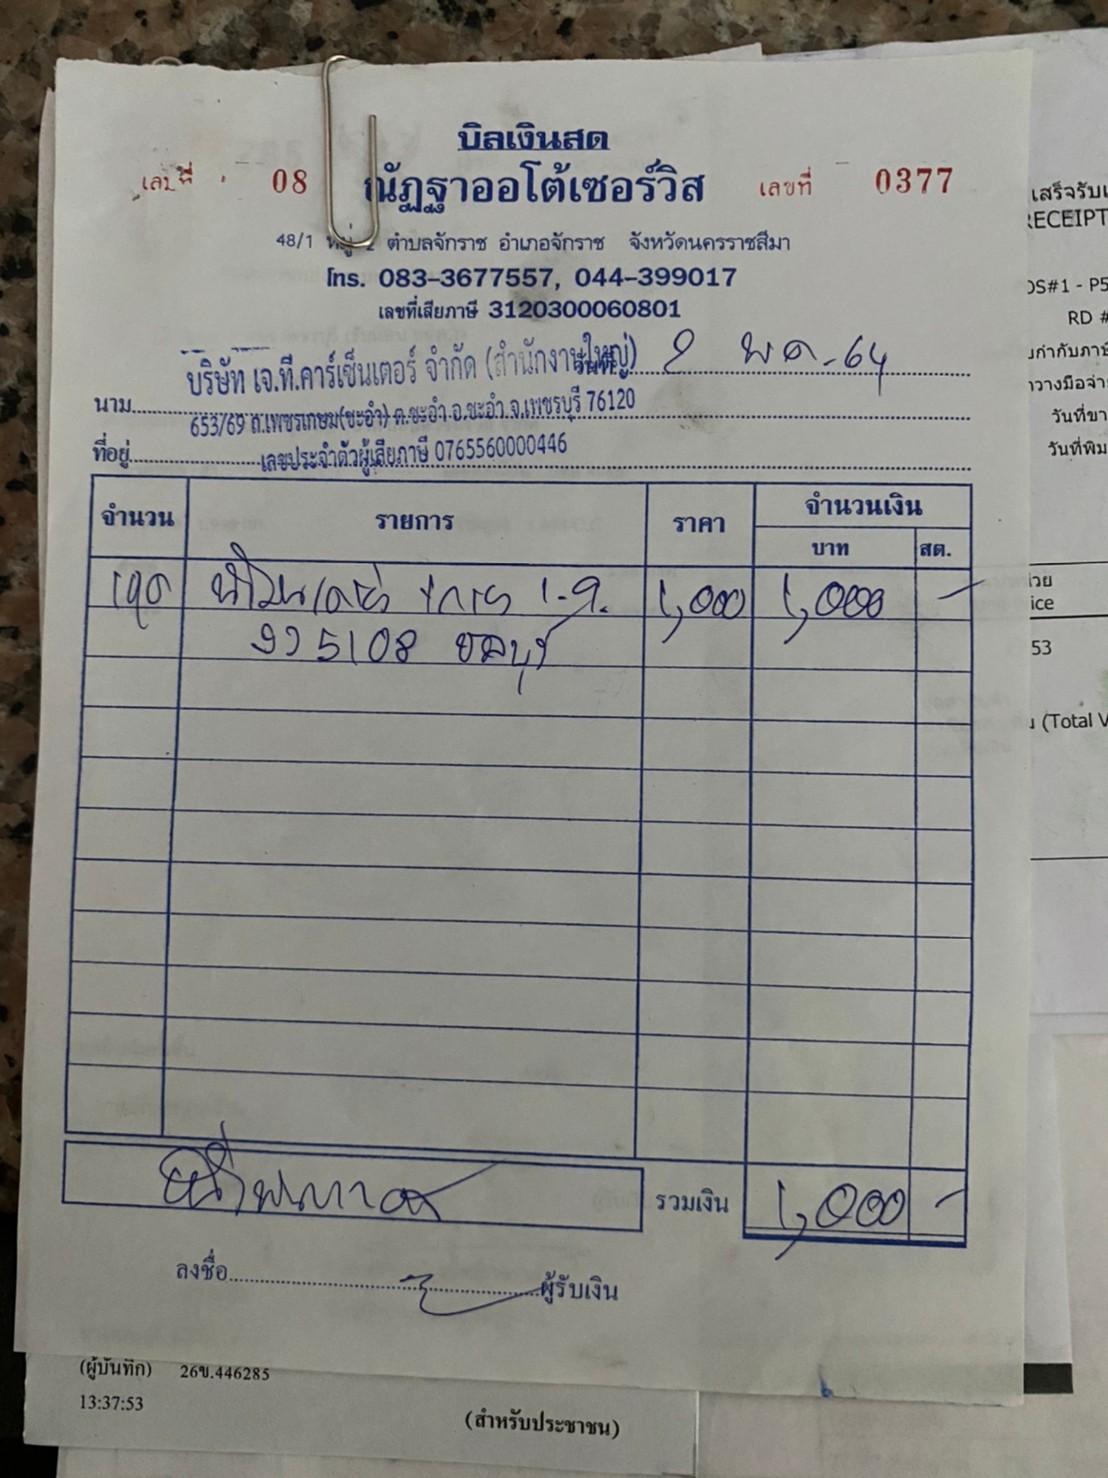 บิลเงินสด
เล่มที่ 08
ณัฏฐาออโต้เซอร์วิส
เลขที่ 0377
48/1 หมู่ 2 ตำบลจักราช อำเภอจักราช จังหวัดนครราชสีมา
โทร. 083-3677557, 044-399017
เลขที่เสียภาษี 3120300060801
บริษัท เจ.ที.คาร์เซ็นเตอร์ จำกัด (สำนักงานใหญ่)
วันที่ 2 พค-64
นาม
653/69 ถ.เพชรเกษม(ชะอำ) ต.ชะอำ อ.ชะอำ จ.เพชรบุรี 76120
ที่อยู่
เลขประจำตัวผู้เสียภาษี 0765560000446
จำนวน รายการ ราคา จำนวนเงิน
บาท สต.
1,000 1,000 -
5108 ชลบุรี
หนึ่งพันบาท
รวมเงิน 1,000 -
ลงชื่อ ผู้รับเงิน
(ผู้บันทึก) 26ข.446285
13:37:53
(สำหรับประชาชน)
RECEIPT
OS#1 - P5
RD #
วันที่ขา
วันที่พิม
ice
53
(Total V